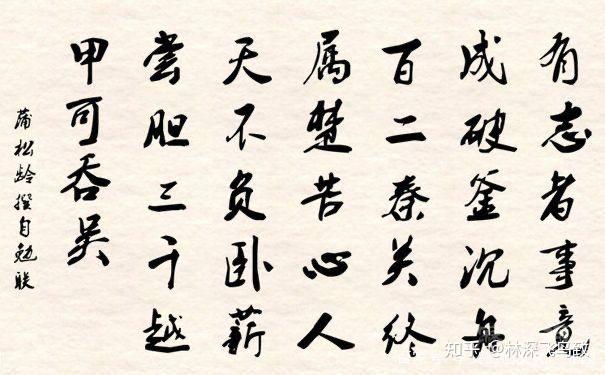 有志者事竟
成破釜沉舟
百二秦关终
属楚苦心人
天不负卧薪
尝胆三千越
甲可吞吴
蒲松龄撰自勉联
知乎 @林深飞鸟